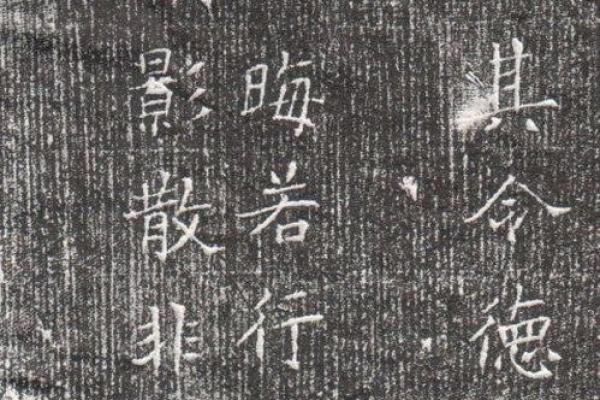 其命德
晦若行
影散非